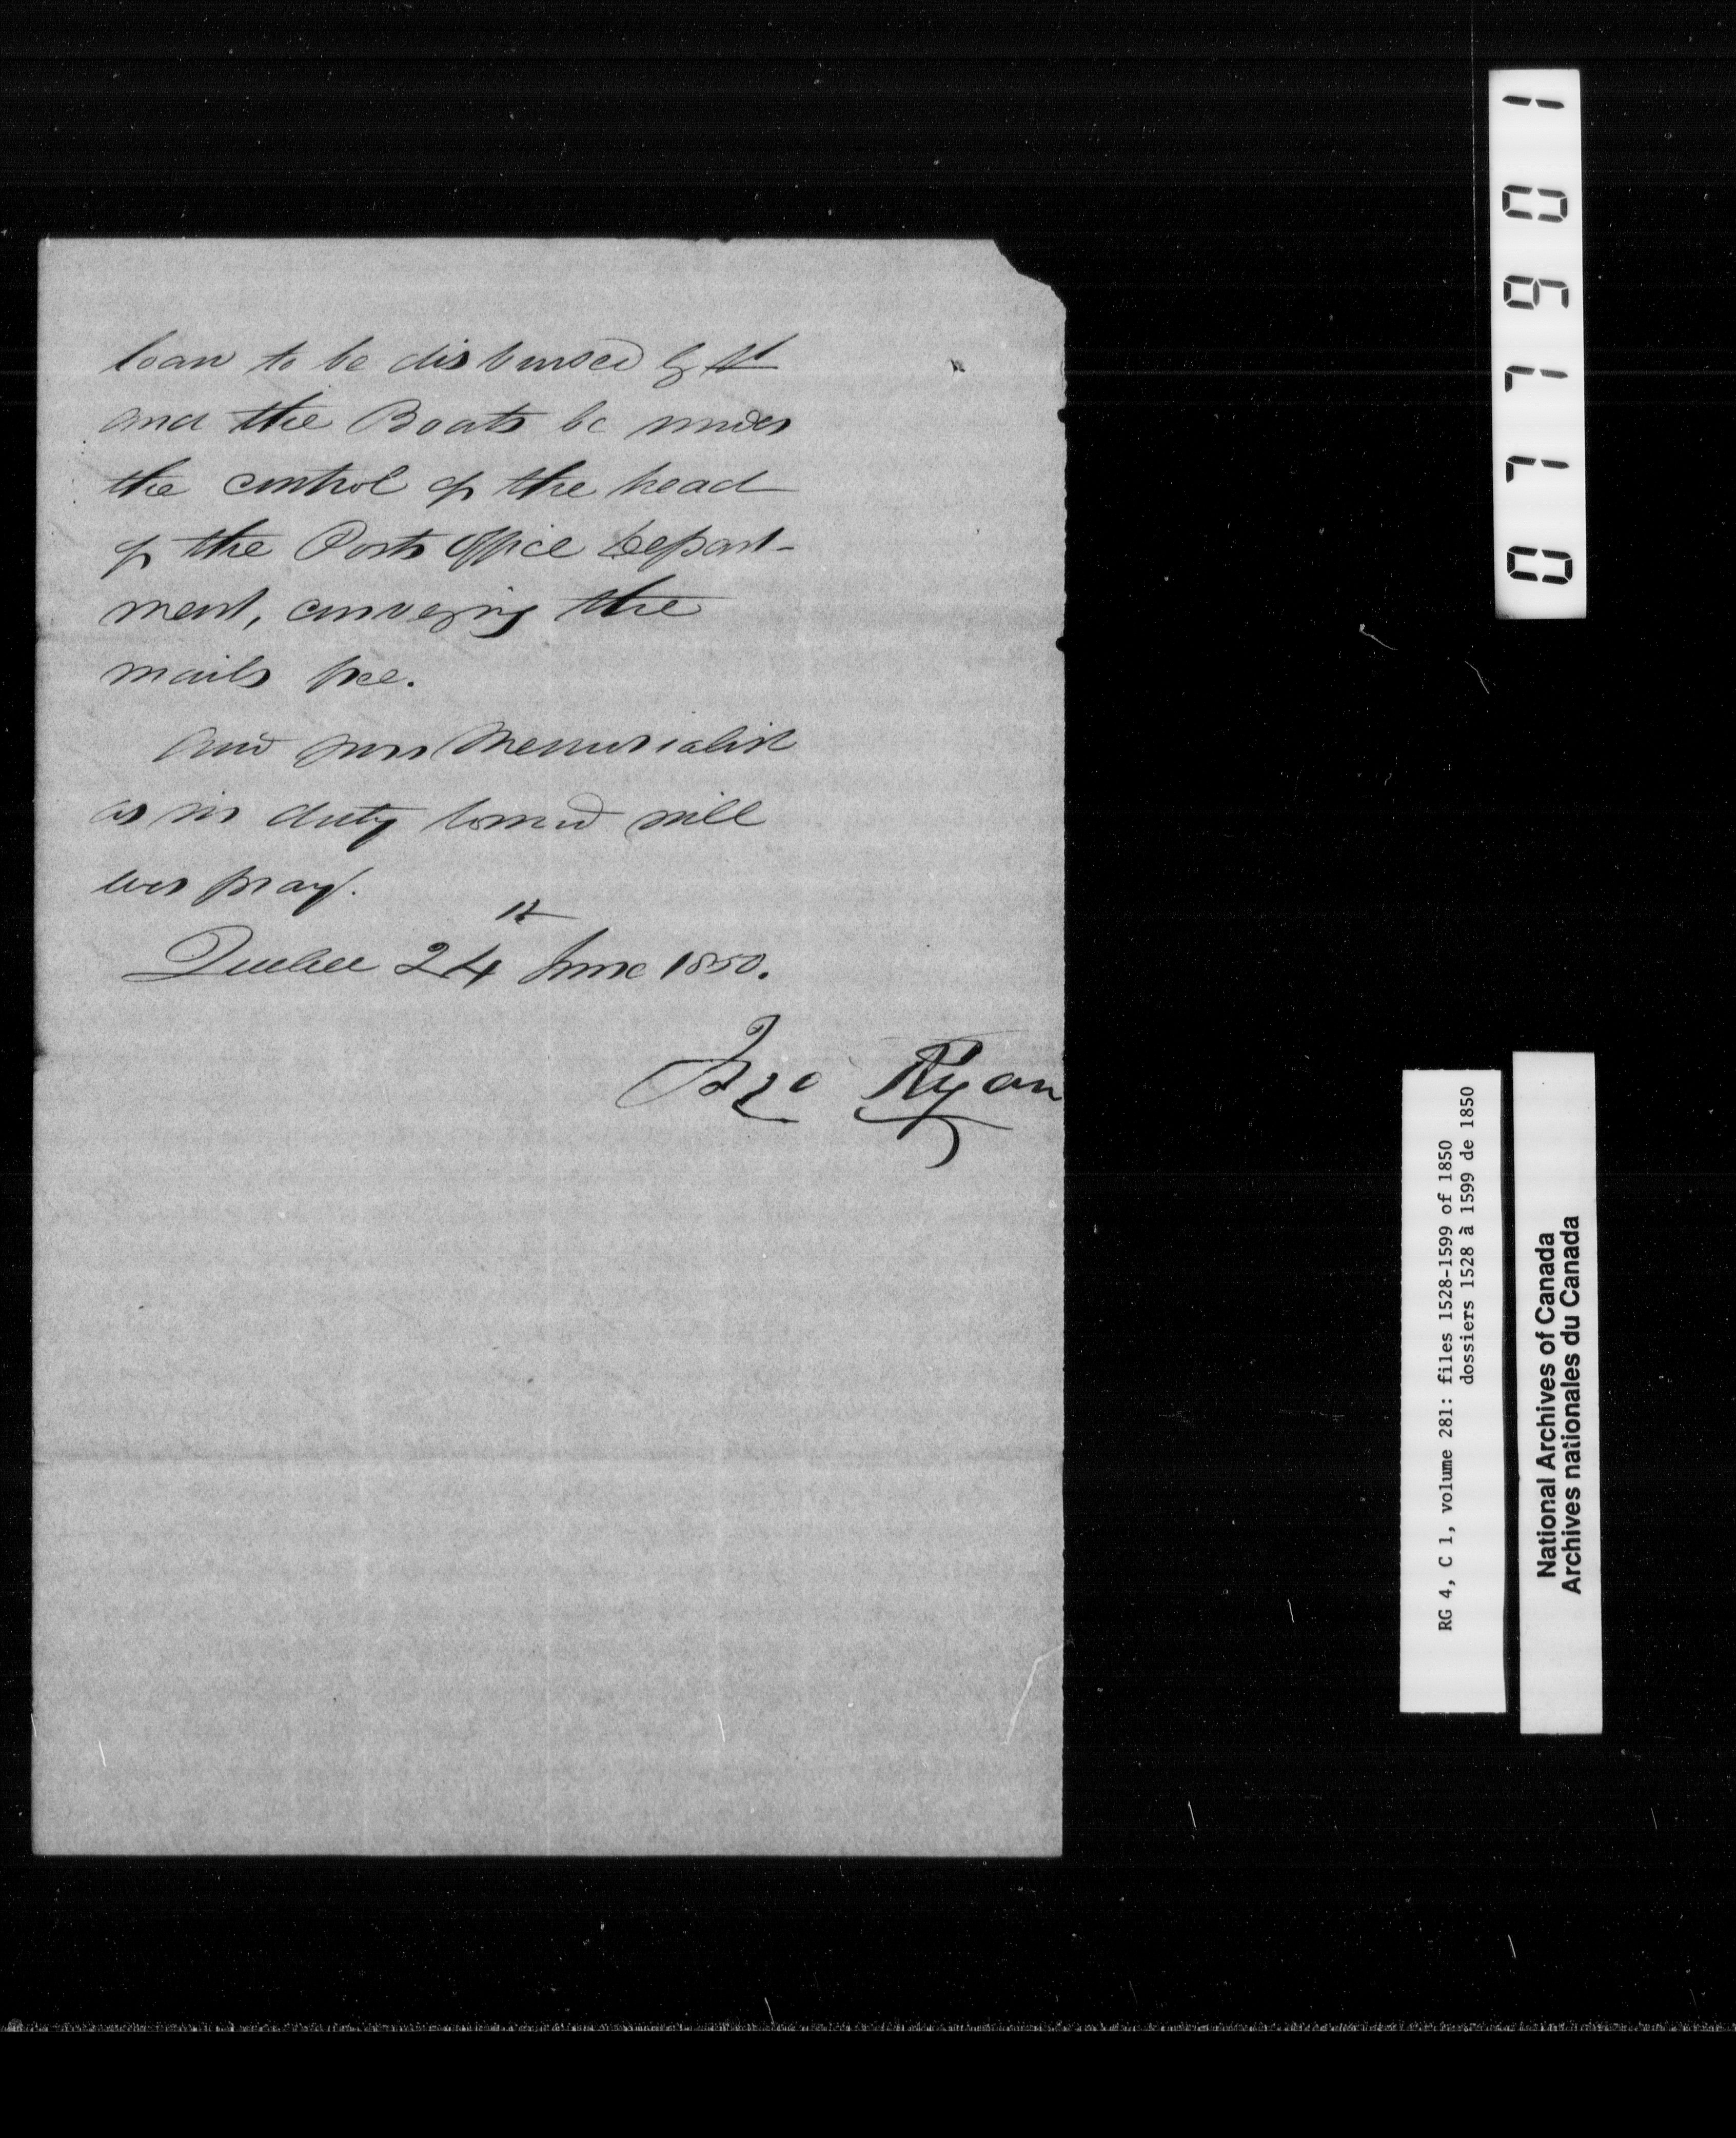 loan to be disbursed by it
and the Boats be under
the control of the head
of the Post Office Depart-
ment, conveying the
mails free.
And your Memorialist
as in duty bound will
ever pray.
Quebec 24th June 1850.
Jno Ryan
077901
RG 4, C 1, volume 281: files 1528-1599 of 1850
dossiers 1528 à 1599 de 1850
National Archives of Canada
Archives nationales du Canada